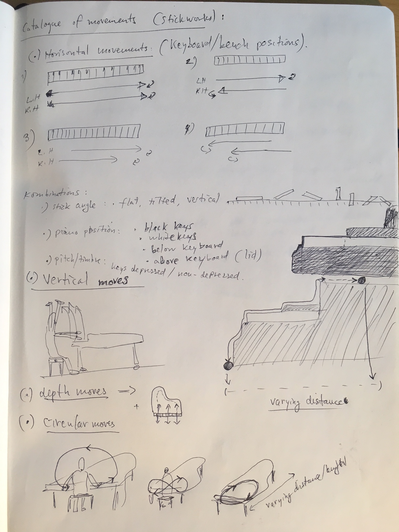 Catalogue of movements (stickworks):
(.) Horisontal movements: (Keyboard/bench positions).
1)
L.H
R.H
2)
L.H
R.H
3)
L.H
R.H
4)
Kombinations:
.) stick angle: • flat, tilted, vertical
.) piano position: • black keys
• white keys
• below keyboard
• above keyboard (lid)
.) pitch/timbre: keys depressed / non-depressed.
(.) Vertical moves
(.) depth moves → +
varying distance
(.) Circular moves
varying distance/height